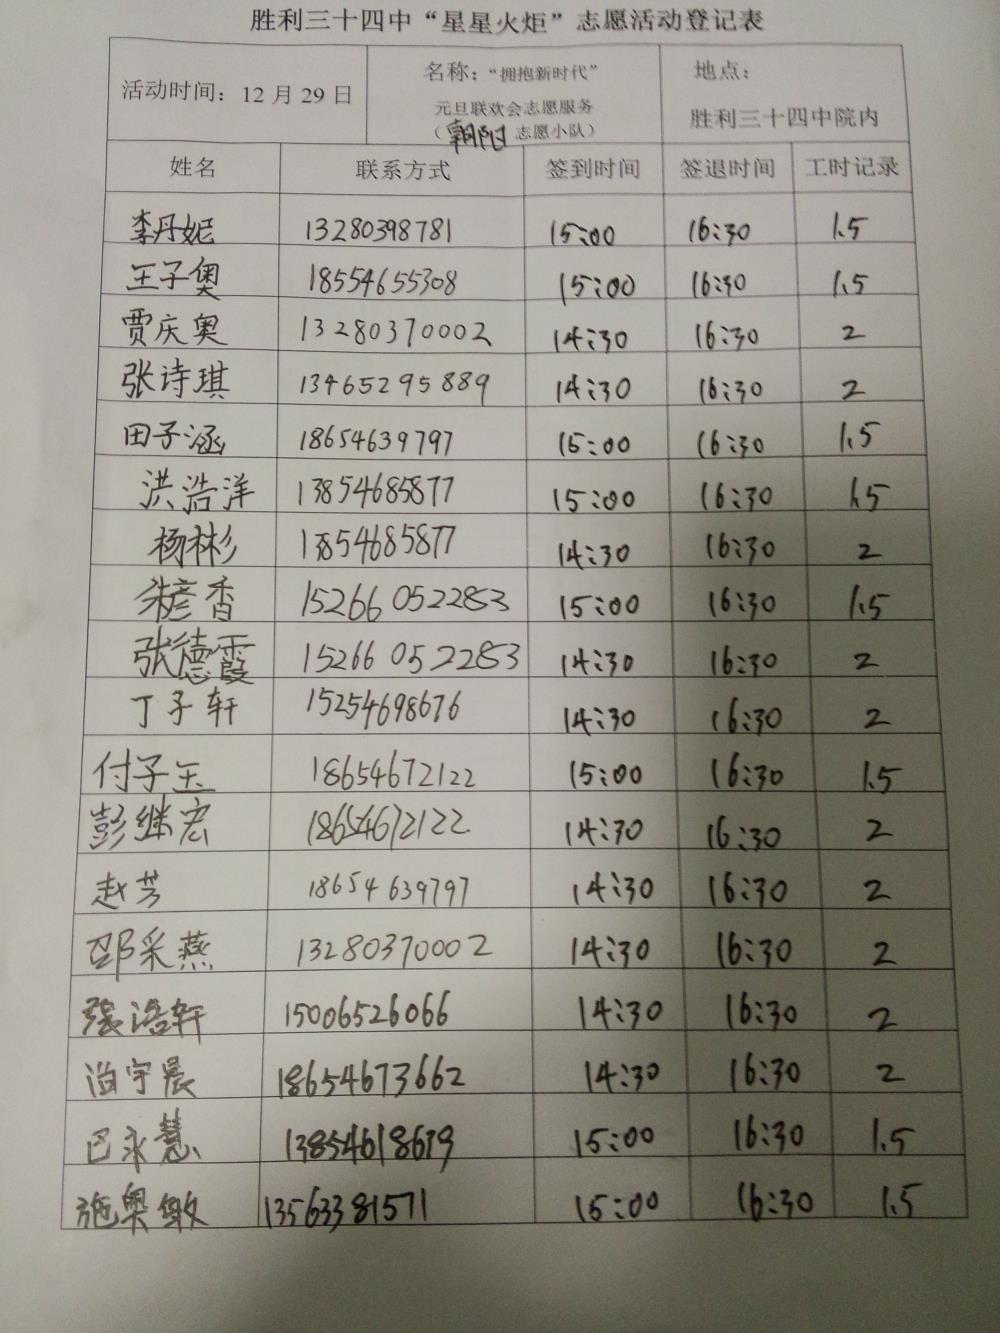 胜利三十四中“星星火炬”志愿活动登记表
活动时间：12月29日
名称：“拥抱新时代”
元旦联欢会志愿服务
（朝阳志愿小队）
地点：
胜利三十四中院内
姓名 联系方式 签到时间 签退时间 工时记录
李丹妮 13280398781 15:00 16:30 1.5
王子奥 18554655308 15:00 16:30 1.5
贾庆奥 13280370002 14:30 16:30 2
张诗琪 13465295889 14:30 16:30 2
田子涵 18654639797 15:00 16:30 1.5
洪浩洋 13854685877 15:00 16:30 1.5
杨彬 13854685877 14:30 16:30 2
朱彦香 15266052283 15:00 16:30 1.5
张德霞 15266052283 14:30 16:30 2
丁子轩 15254698676 14:30 16:30 2
付子玉 18654672122 15:00 16:30 1.5
彭继宏 18654672122 14:30 16:30 2
赵芳 18654639797 14:30 16:30 2
邵采燕 13280370002 14:30 16:30 2
张浩轩 15006526066 14:30 16:30 2
宇晨 18654673662 14:30 16:30 2
巴永慧 13854618679 15:00 16:30 1.5
施奥敏 13563381571 15:00 16:30 1.5